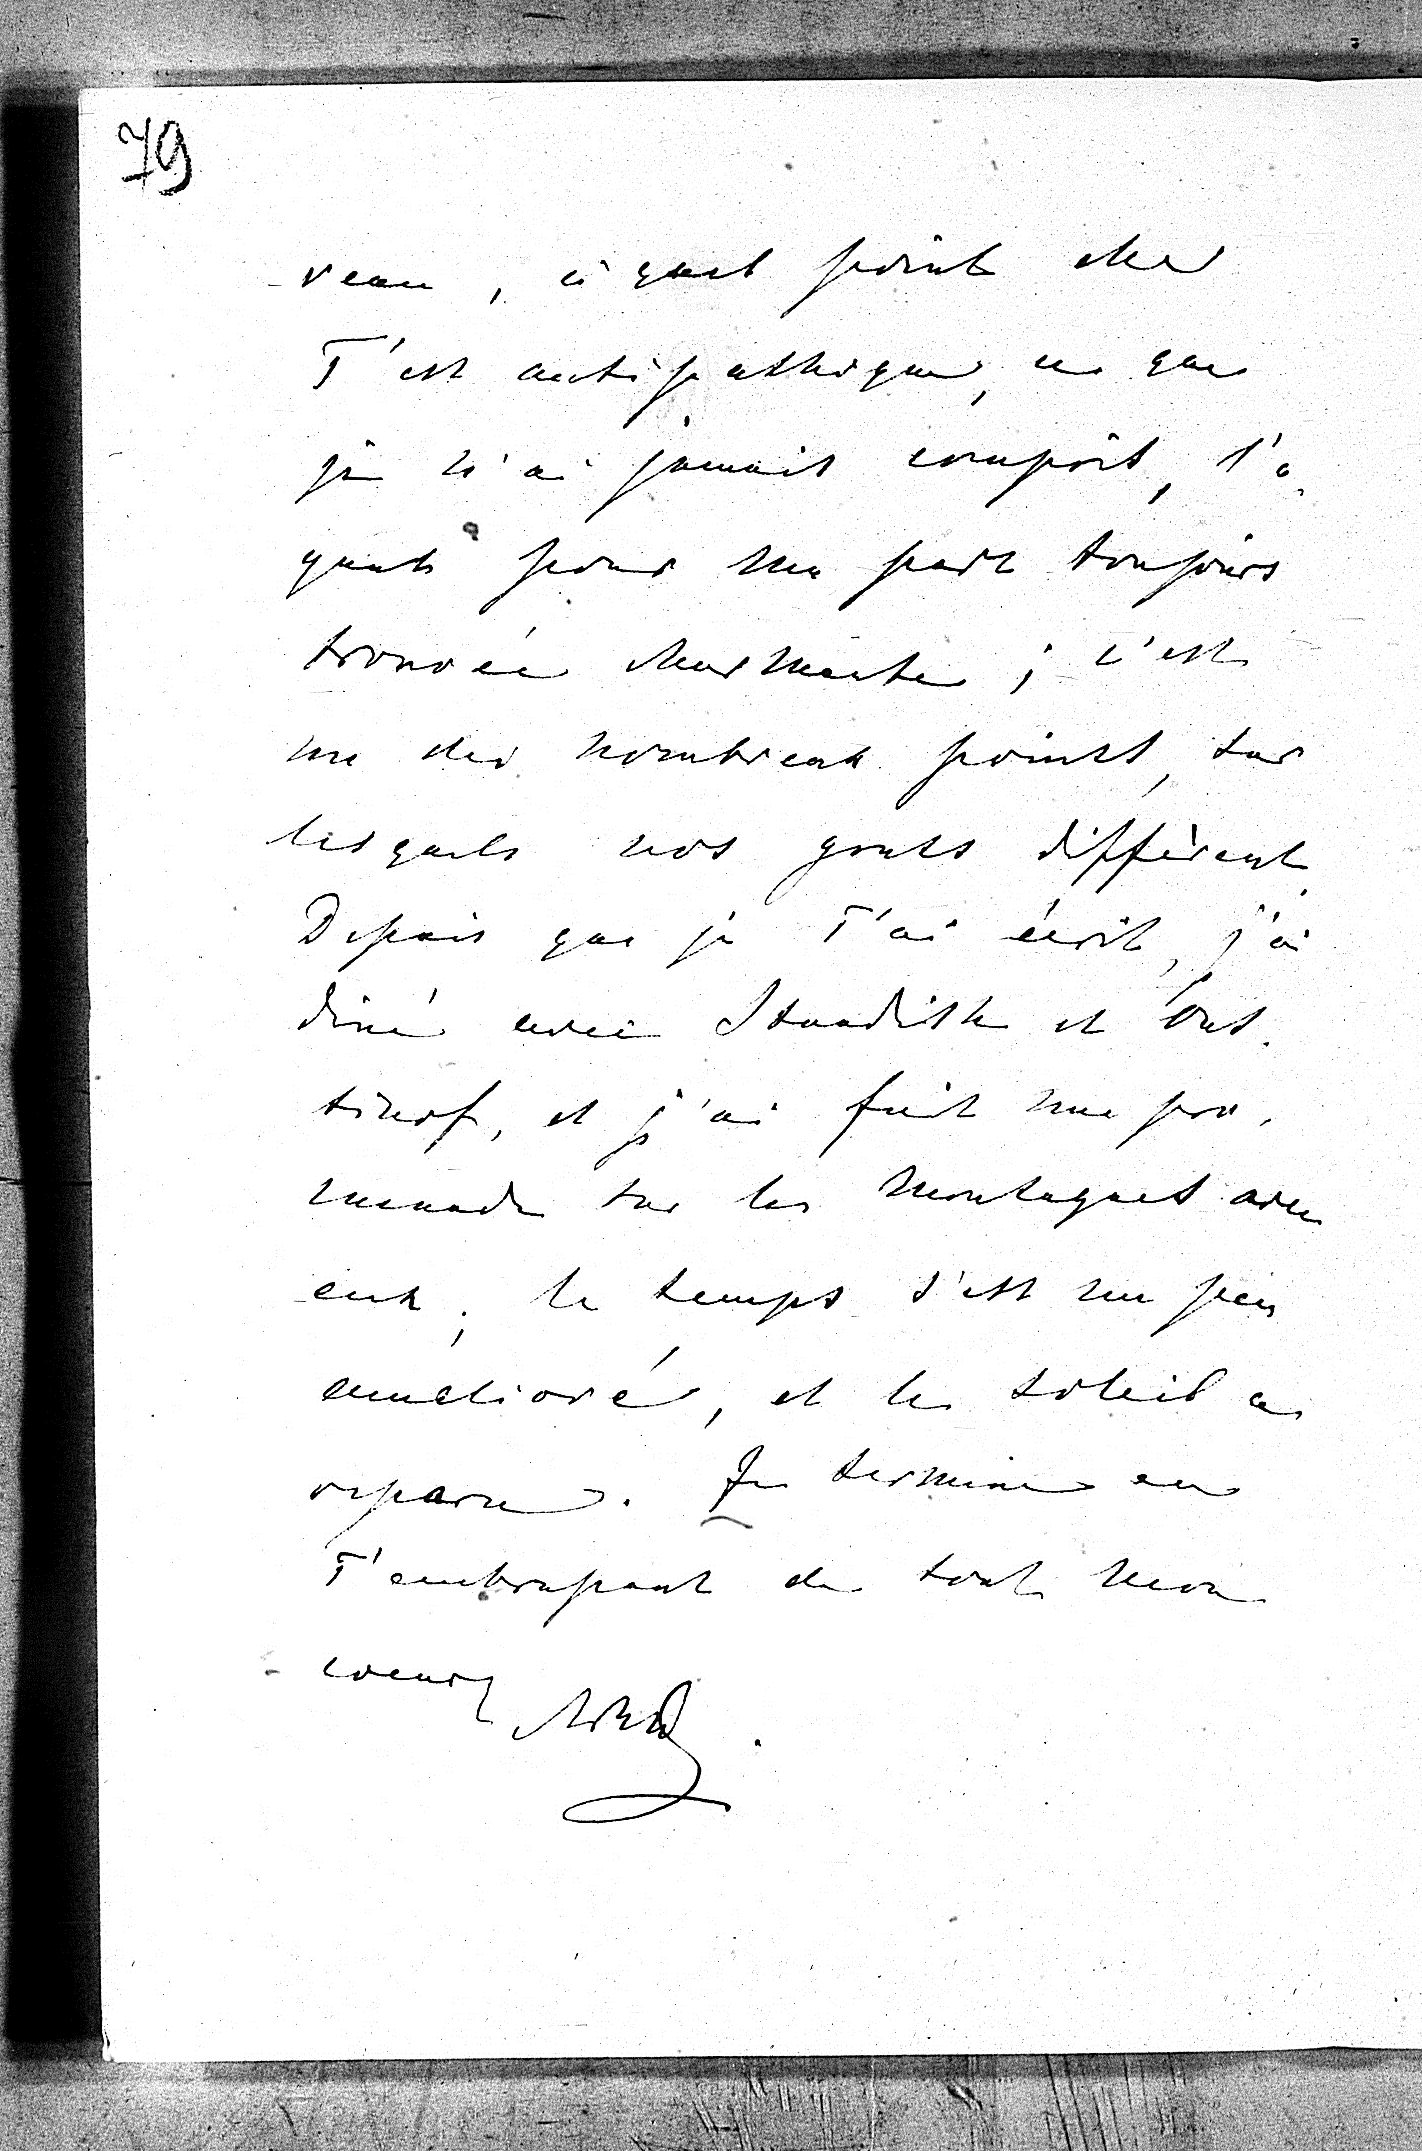 79
veau, à quel point elle
T'est antipathique, ce que
je n'ai jamais compris, l'a
yant pour ma part toujours
trouvée charmante ; c'est
un des nombreux points, sur
lesquels nos gouts diffèrent.
Depuis que je T'ai écrit, j'ai
diné avec Standish et Ous.
tinof, et j'ai fait une pro.
menade sur les montagnes avec
eux ; le temps s'est un peu
amélioré, et le soleil a
reparu. Je termine en
T'embrassant de tout mon
coeur